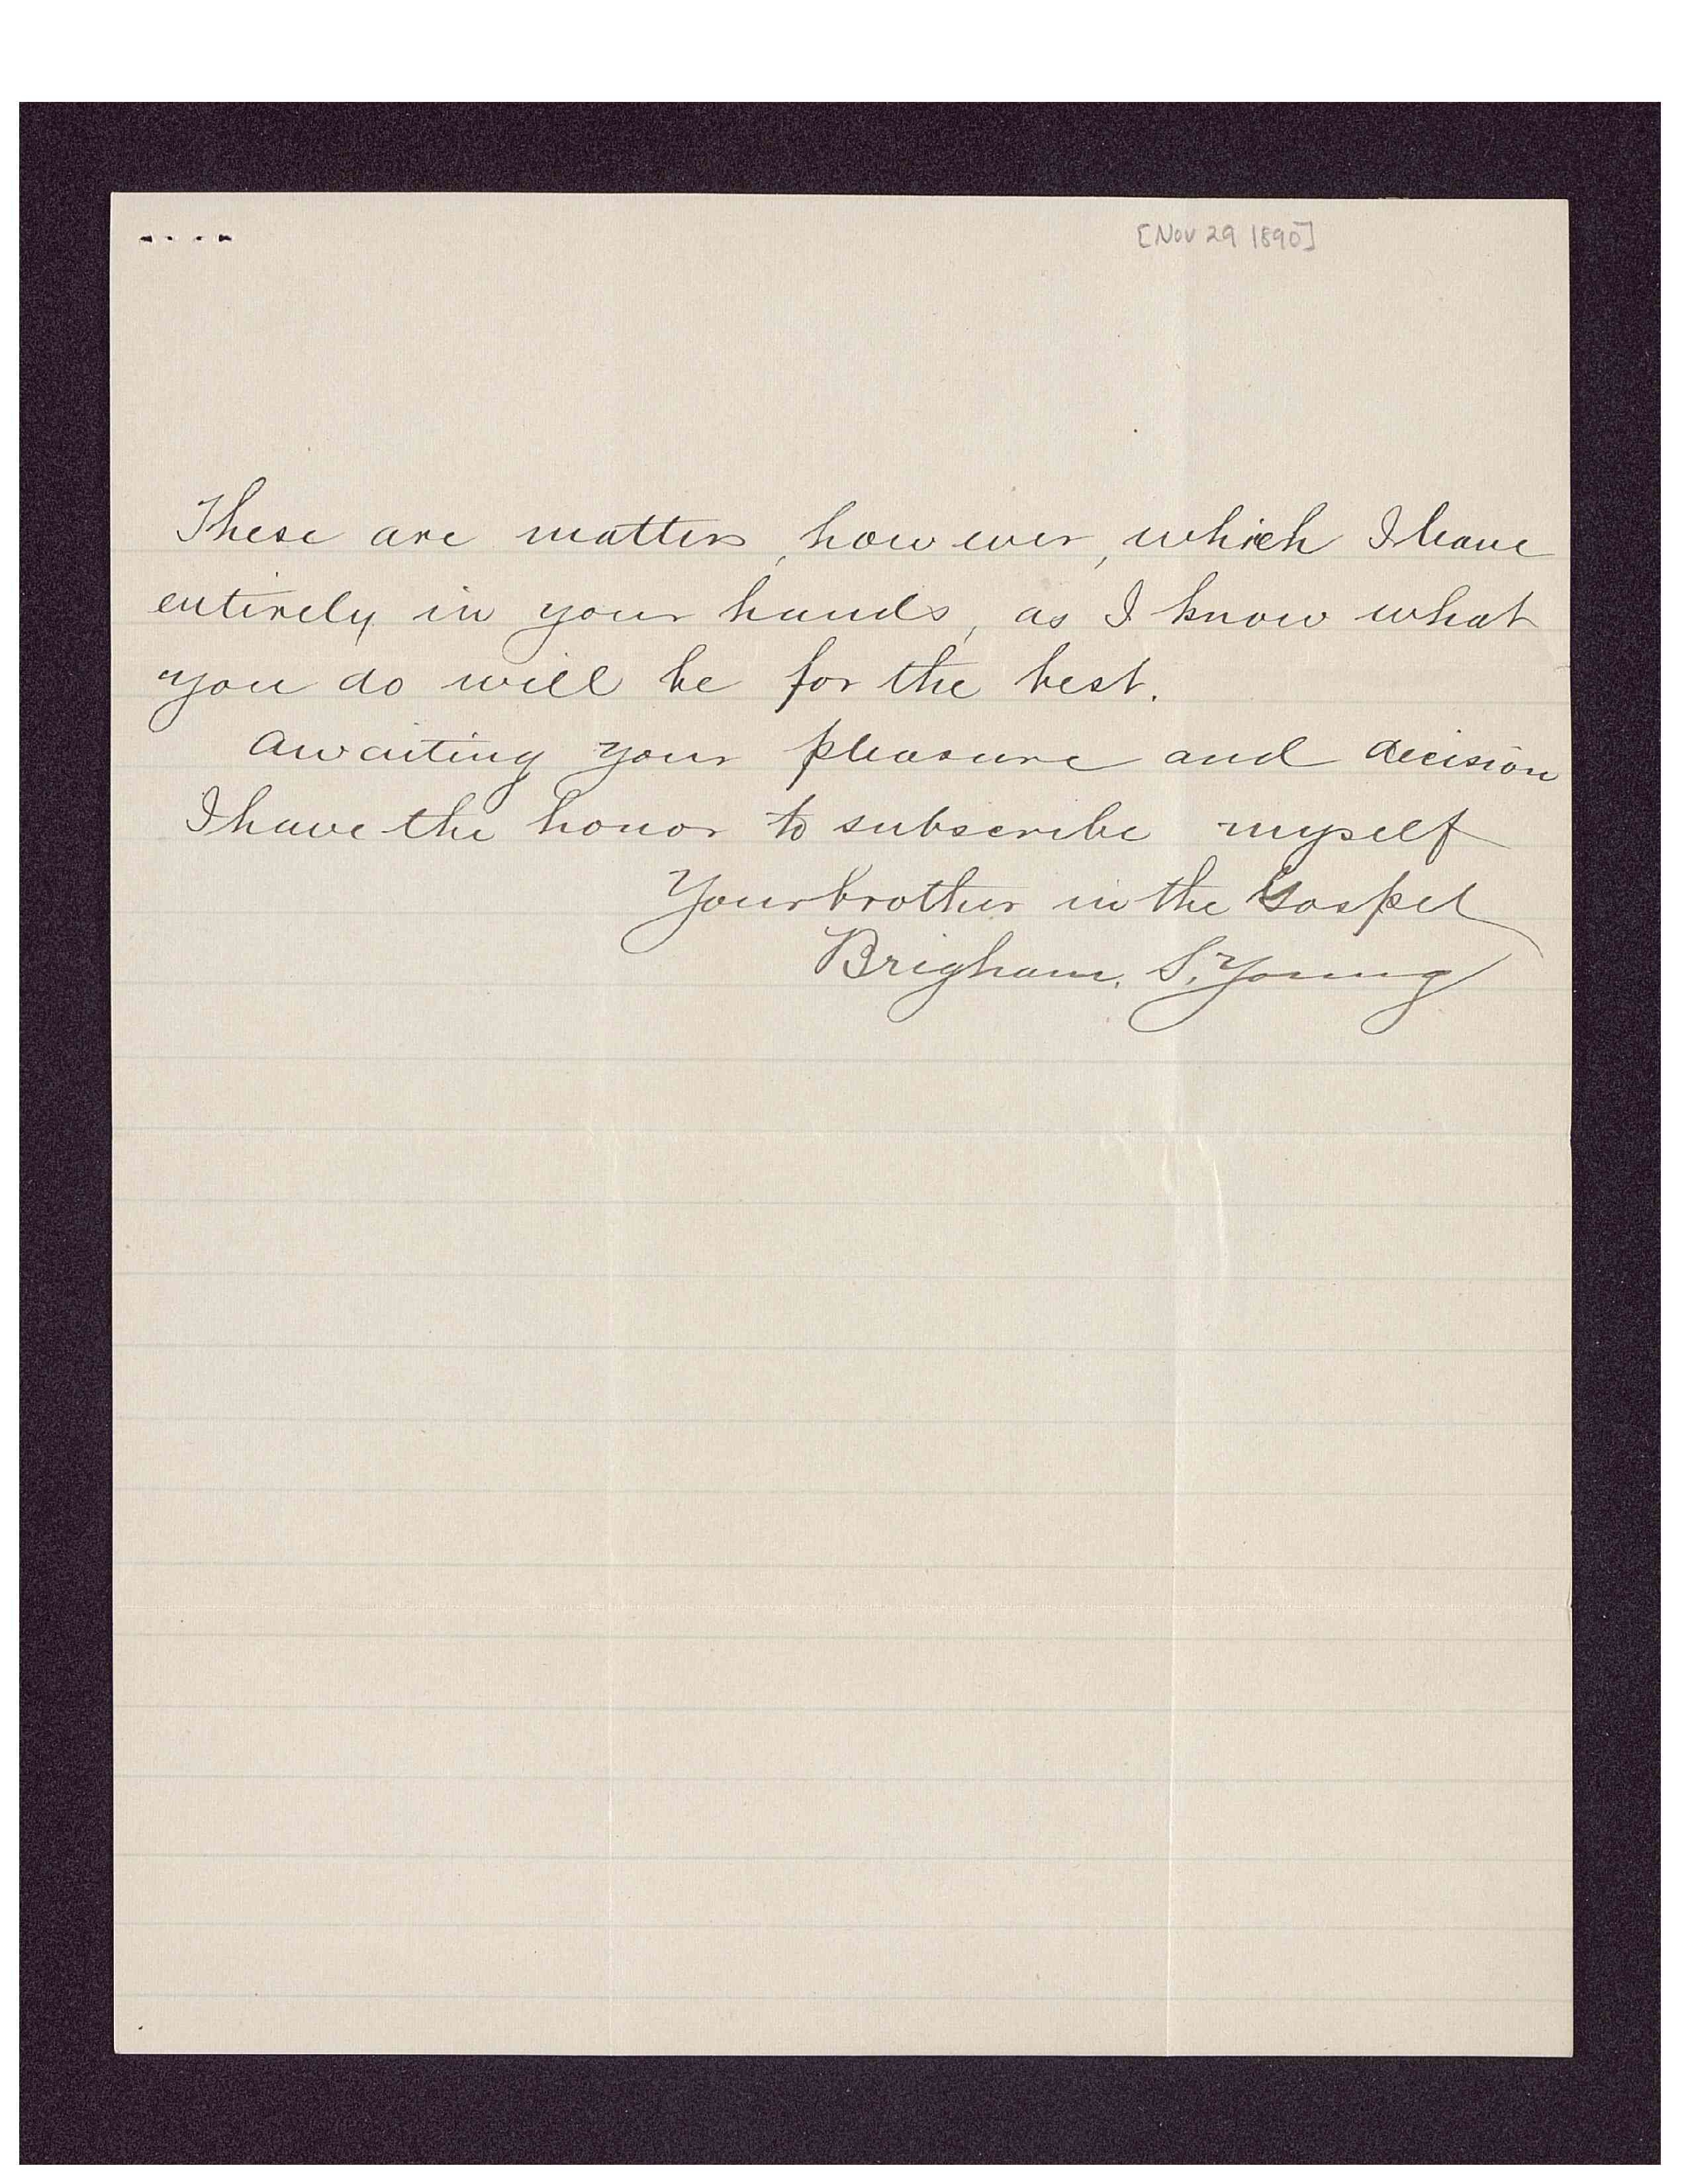 [Nov 29 1890]
These are matters, however, which I leave
entirely in your hands, as I know what
you do will be for the best.
Awaiting your pleasure and decision
I have the honor to subscribe myself
Your brother in the Gospel
Brigham. S. Young